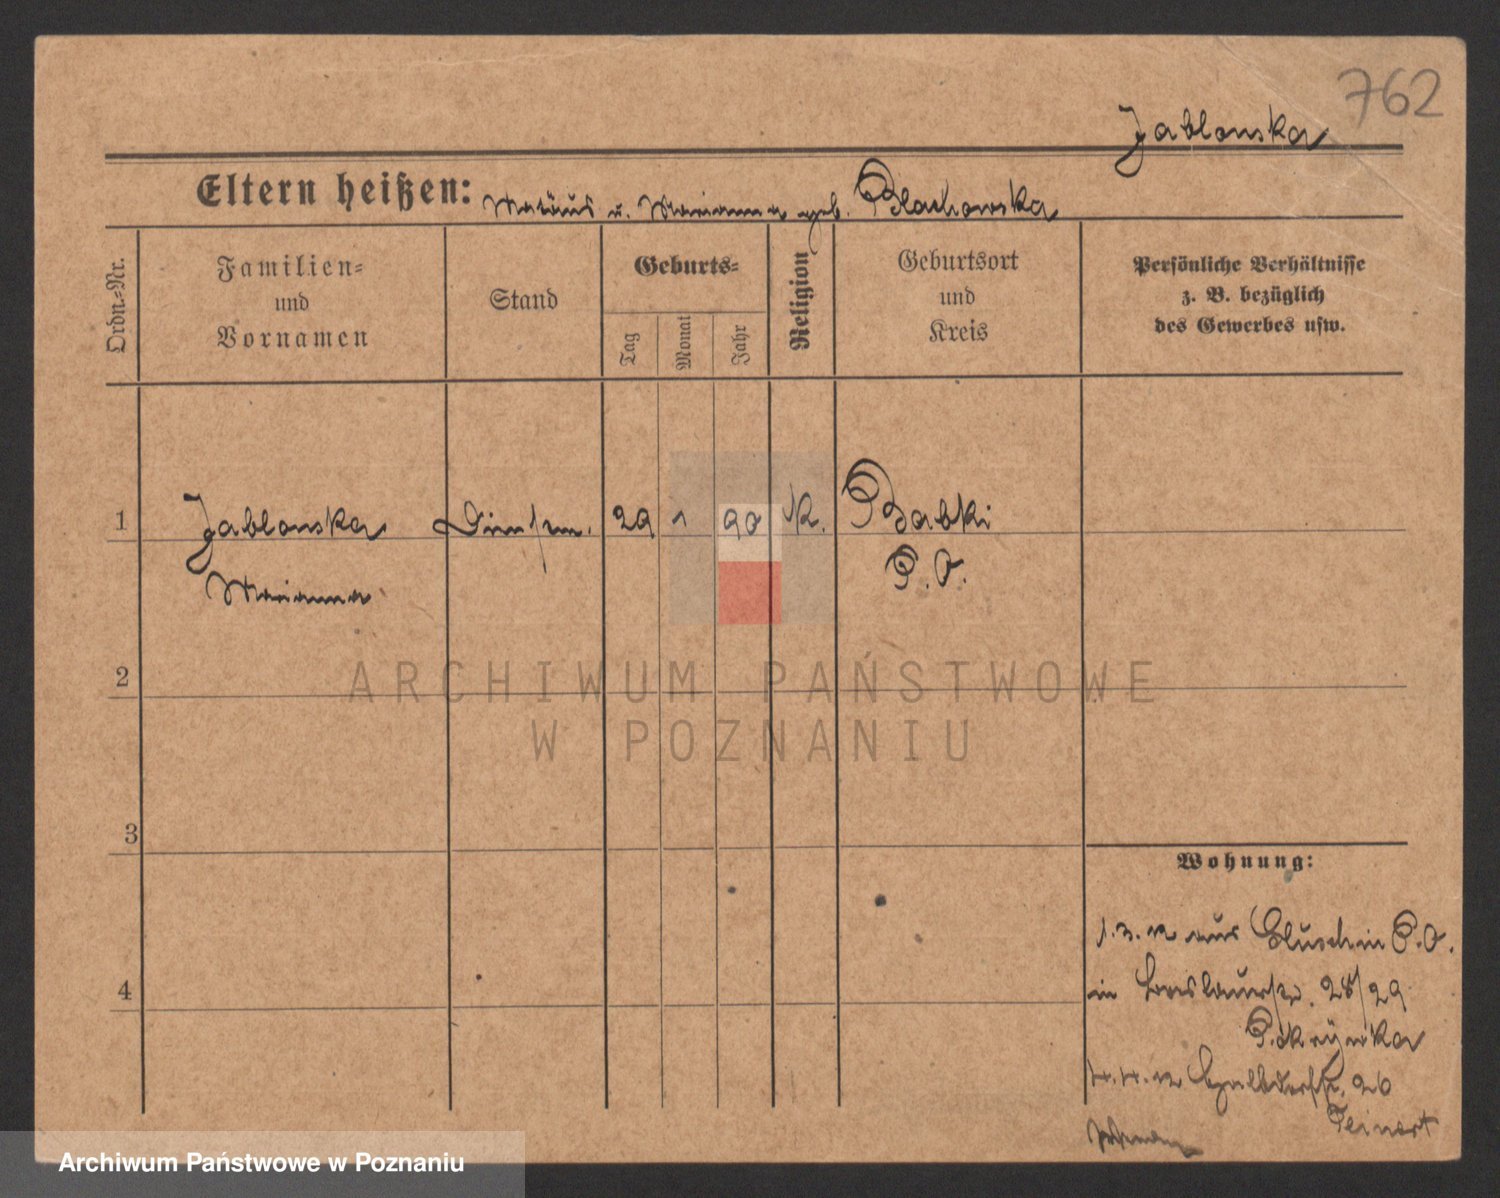 762
Jablonska
Eltern heißen: Matäus u. Marianna geb. Blachowska
Ordn.=Nr.
Familien=
und
Vornamen
Stand
Geburts=
Tag
Monat
Jahr
Religion
Geburtsort
und
Kreis
Persönliche Verhältnisse
z. B. bezüglich
des Gewerbes usw.
1 Jablonska Dienstm. 29 1 90 K. Babki
Marianna P. O.
ARCHIWUM PAŃSTWOWE
W POZNANIU
2
3
4
Wohnung:
1. 3. 12 aus Gluschin P. O.
in 28/29
4. 4. 12 26
Teinert
Archiwum Państwowe w Poznaniu